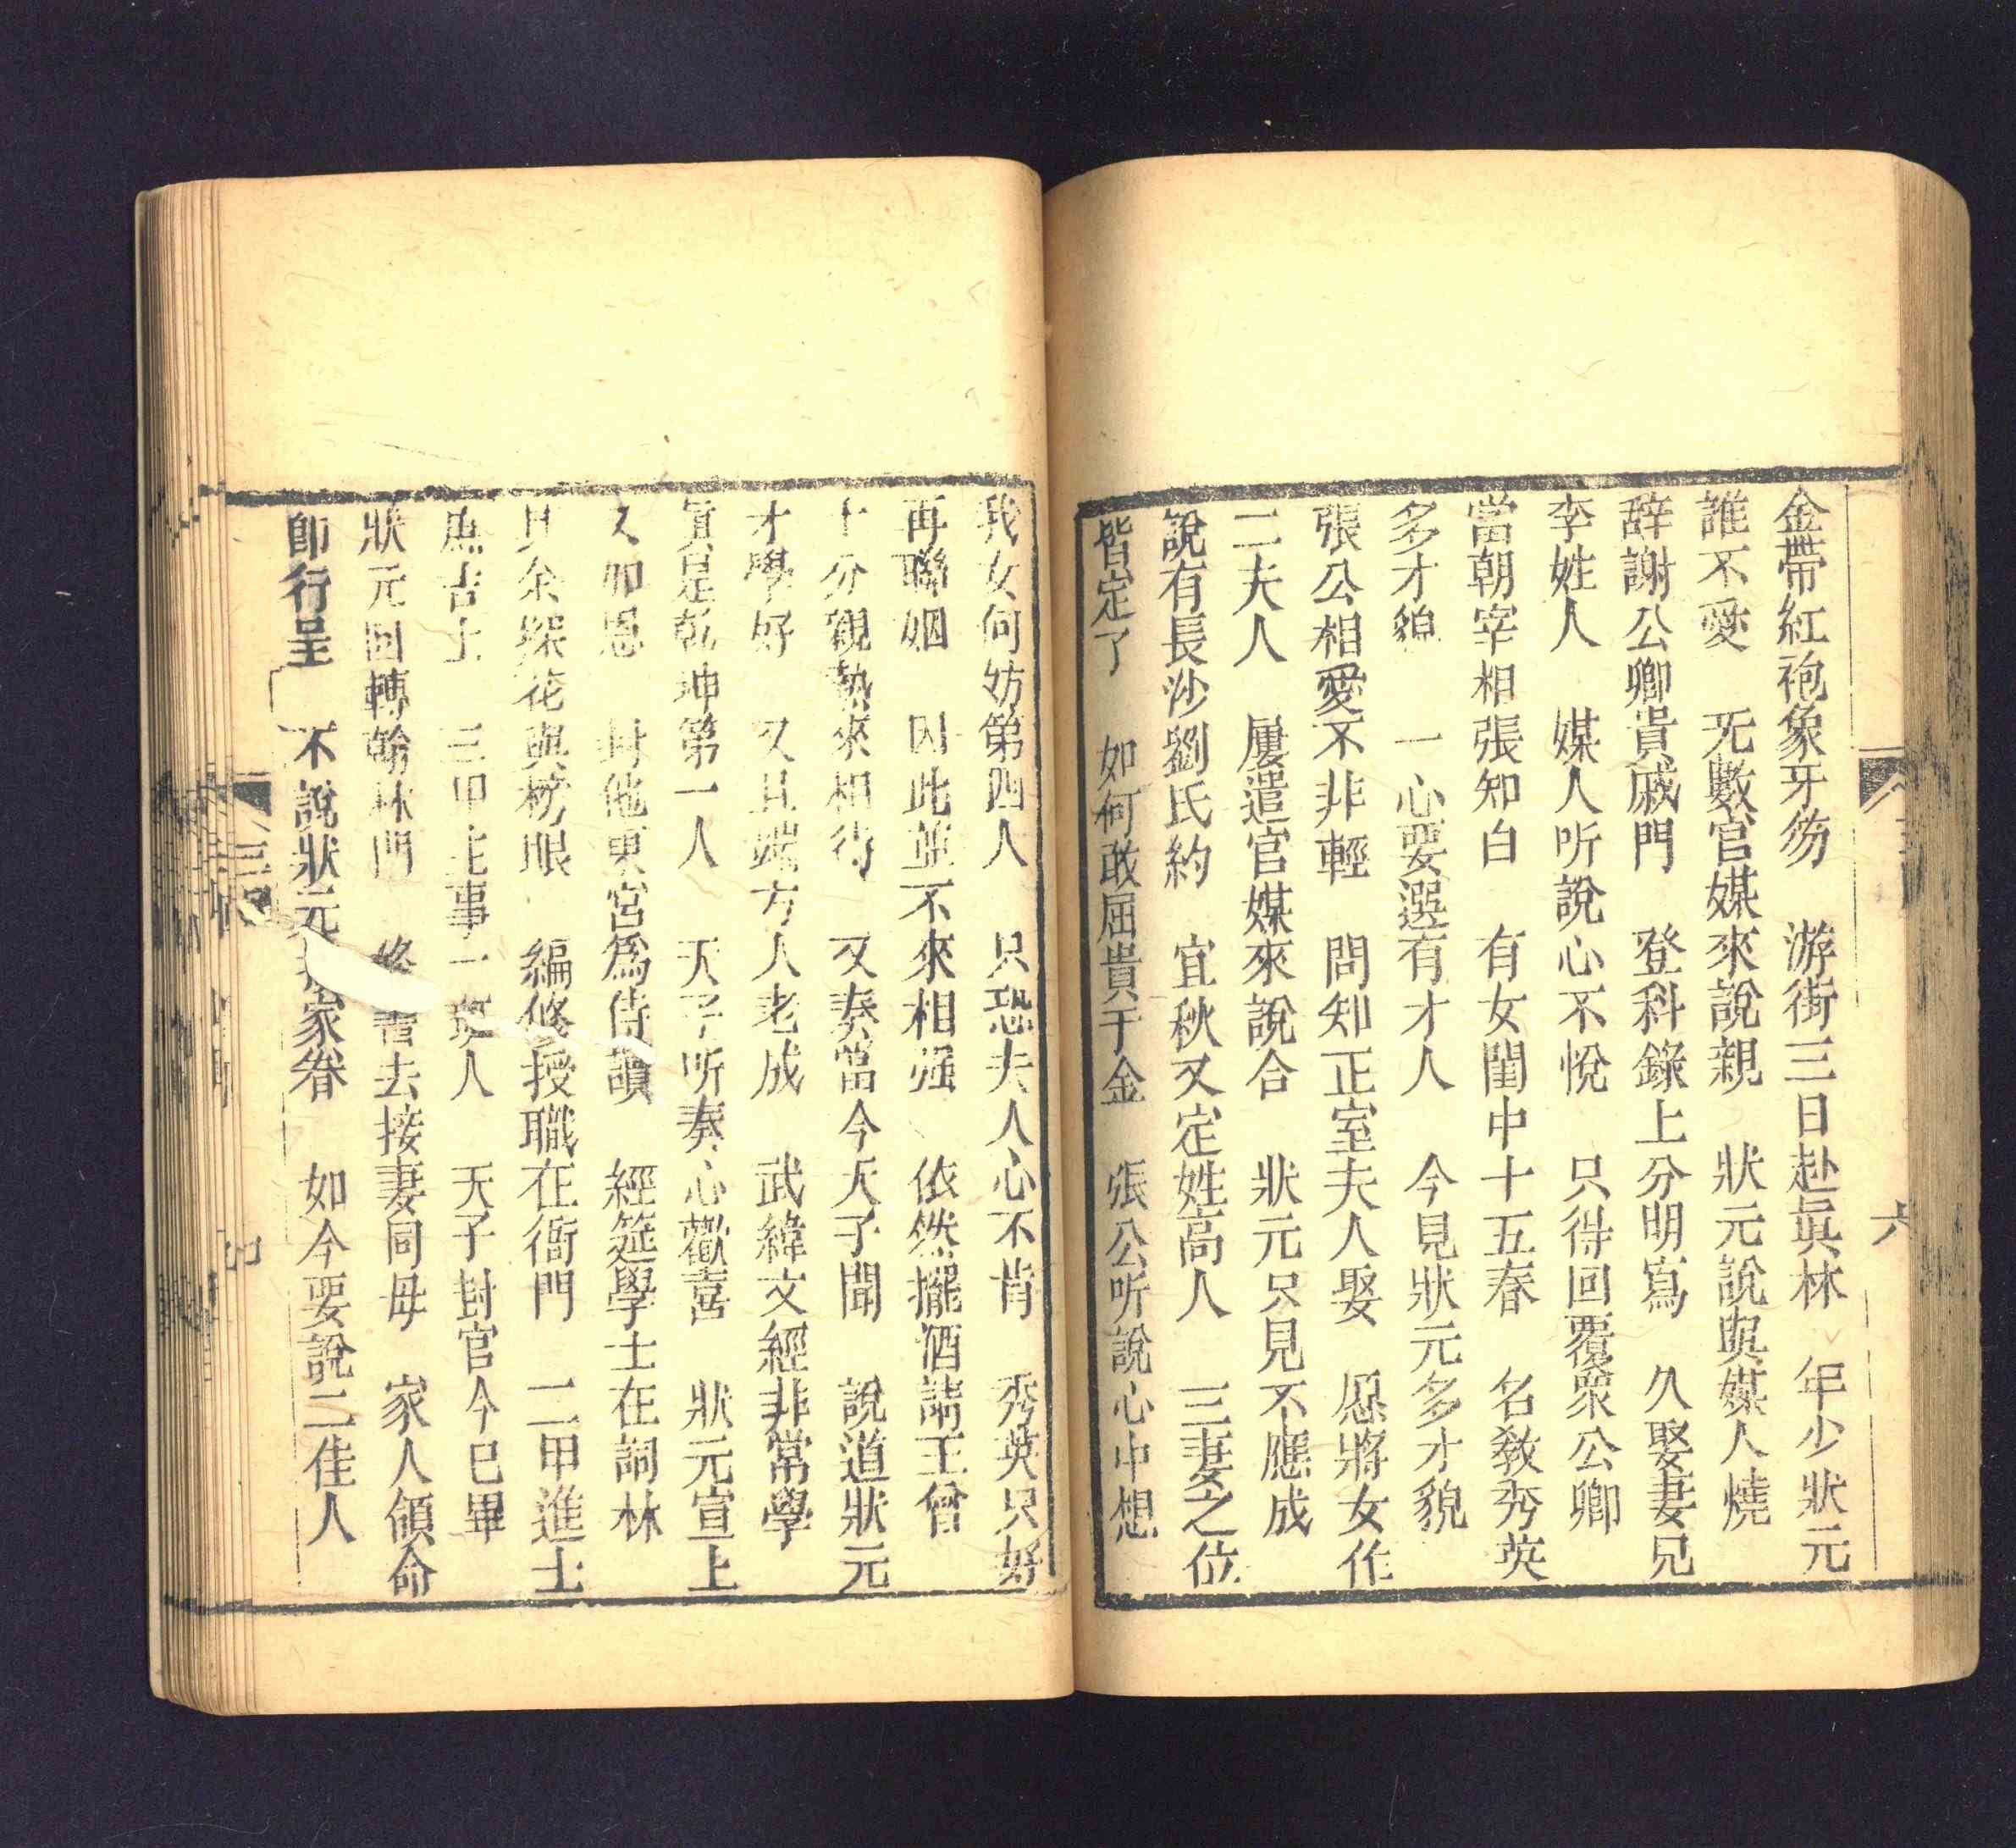 金帶紅袍象牙笏　游街三日赴眞林　年少狀元
誰不愛　无數官媒來說親　狀元說與媒人燒
辞謝公卿貴戚門　登科錄上分明寫　久娶妻兒
李姓人　媒人听說心不悅　只得回覆衆公卿
當朝宰相張知白　有女閨中十五春　名敎秀英
多才貌　一心要選有才人　今見狀元多才貌
張公相愛不非輕　問知正室夫人娶　愿將女作
二夫人　屢遣官媒來說合　狀元只見不應成
說有長沙劉氏約　宜秋又定姓高人　三妻之位
皆定了　如何敢屈貴千金　張公听說心中想
六
我女何妨第四人　只恐夫人心不肯　秀英只好
再聯姻　因此並不來相强　依然擺酒請王曾
十分觀熱來相待　又奏當今天子聞　說道狀元
才學好　又且端方人老成　武緯文經非常學
眞是乾坤第一人　天子听奏心歡喜　狀元宣上
又加恩　封他東宮爲侍讀　經筵學士在詞林
探花與榜眼　編修授職在衙門　二甲進士
庶吉士　三甲主事一班人　天子封官今已畢
狀元回轉翰林門　書去接妻同毋　家人領命
即行呈　不說狀元家眷　如今要說二佳人